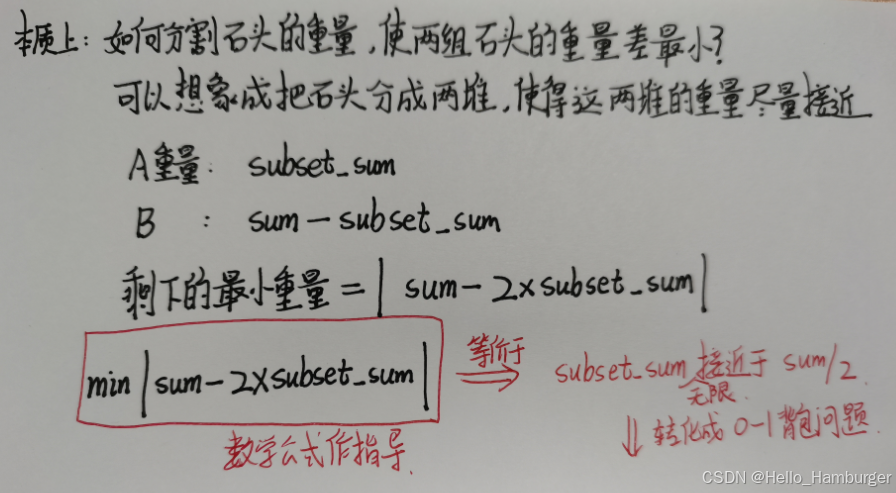 本质上：如何分割石头的重量，使两组石头的重量差最小？
可以想象成把石头分成两堆，使得这两堆的重量尽量接近
A重量： subset_sum
B ： sum－subset_sum
剩下的最小重量＝| sum－2×subset_sum|
min |sum－2×subset_sum|
等价于
subset_sum 接近于 sum/2
无限.
数学公式作指导.
⇓ 转化成 0-1背包问题.
CSDN @Hello_Hamburger